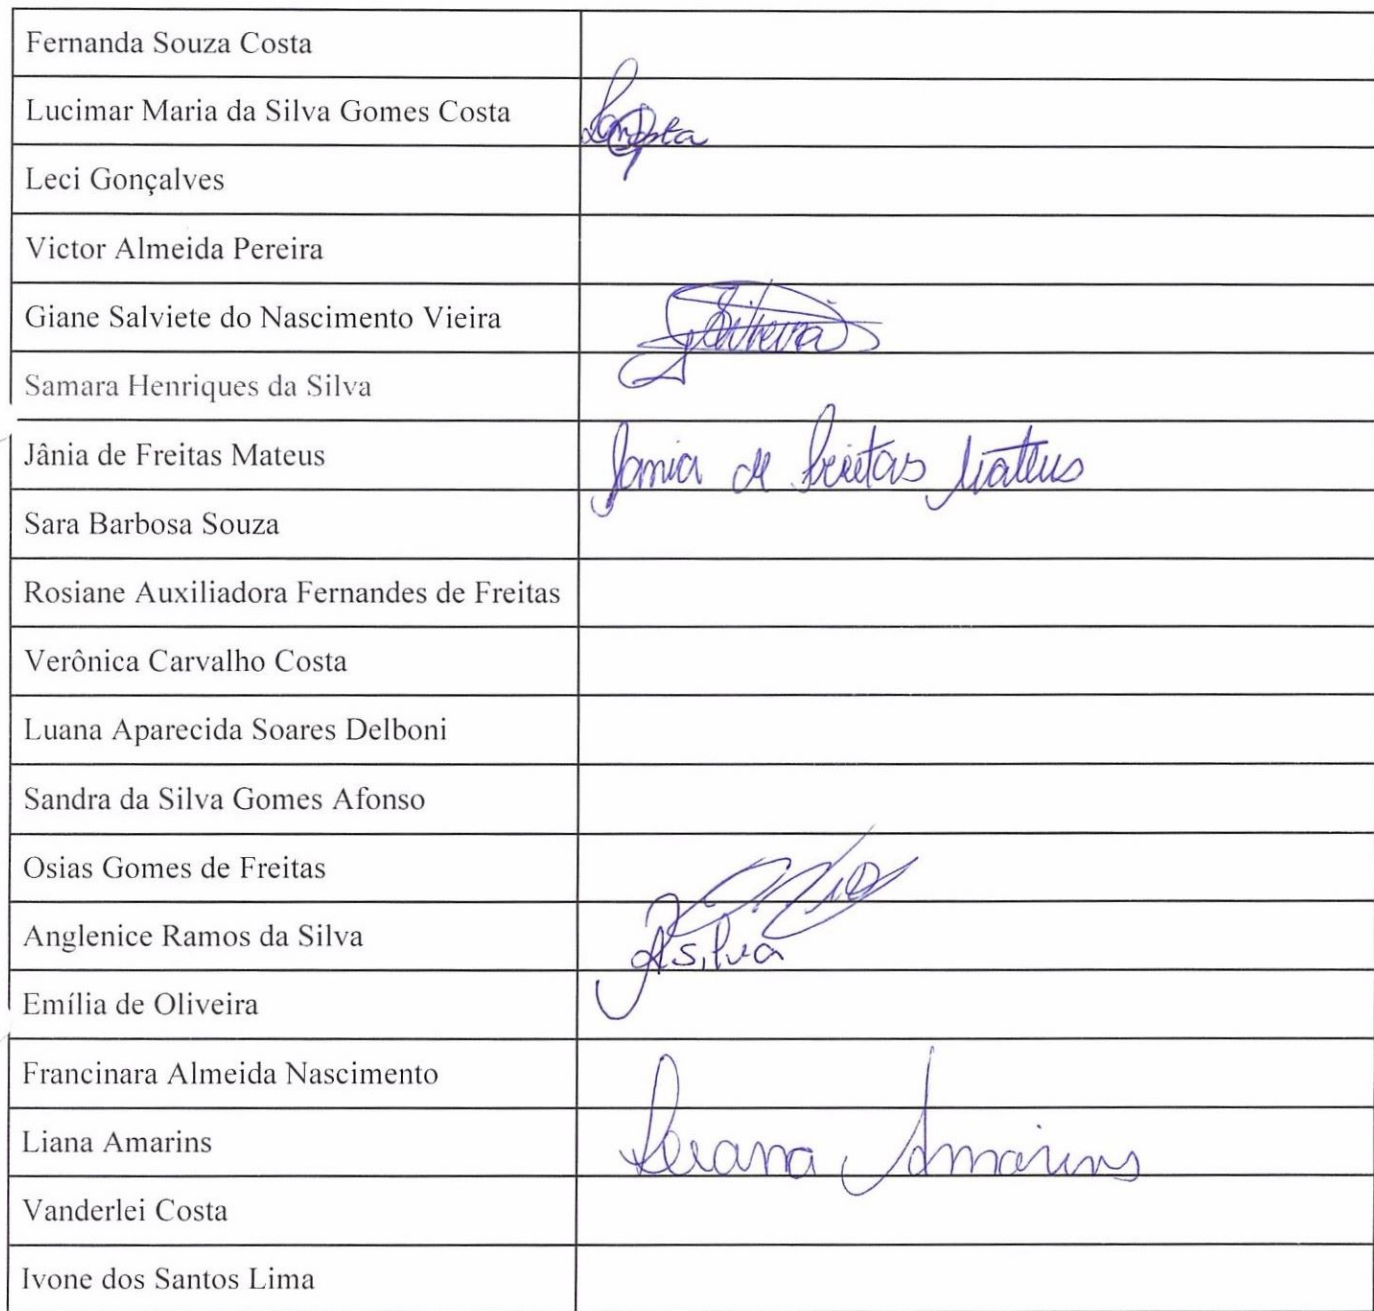 Fernanda Souza Costa
Lucimar Maria da Silva Gomes Costa
Leci Gonçalves
Victor Almeida Pereira
Giane Salviete do Nascimento Vieira
Samara Henriques da Silva
Jânia de Freitas Mateus Jania de Freitas Mateus
Sara Barbosa Souza
Rosiane Auxiliadora Fernandes de Freitas
Verônica Carvalho Costa
Luana Aparecida Soares Delboni
Sandra da Silva Gomes Afonso
Osias Gomes de Freitas
Anglenice Ramos da Silva ASilva
Emília de Oliveira
Francinara Almeida Nascimento
Liana Amarins Liana Amarins
Vanderlei Costa
Ivone dos Santos Lima